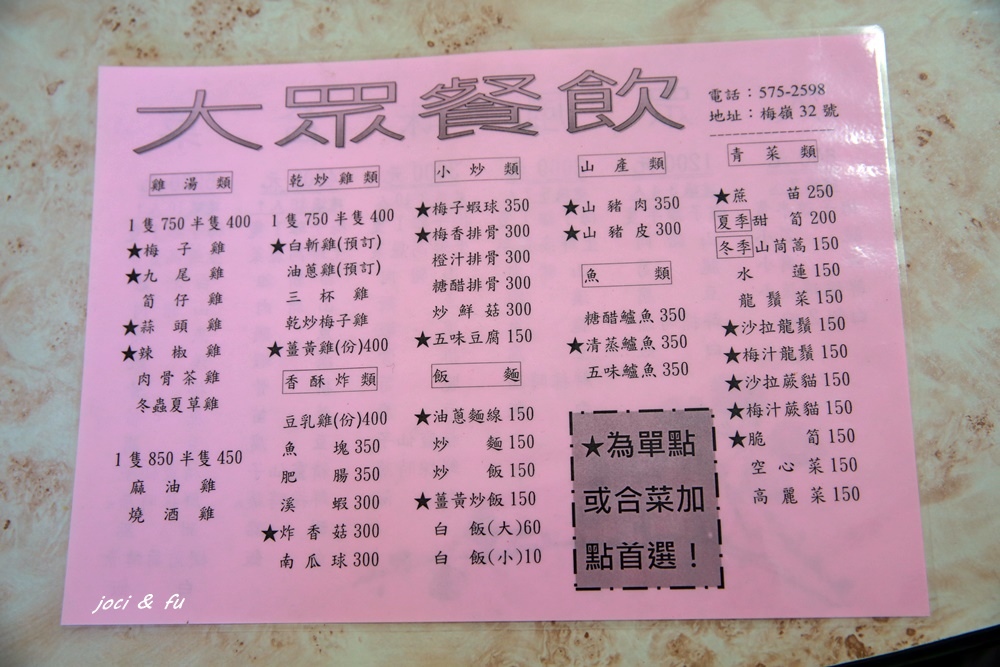 大眾餐飲
電話：575-2598
地址：梅嶺 32 號
雞湯類
1隻750 半隻400
★梅子雞
★九尾雞
筍仔雞
★蒜頭雞
★辣椒雞
肉骨茶雞
冬蟲夏草雞
1隻850 半隻450
麻油雞
燒酒雞
乾炒雞類
1隻750 半隻400
★白斬雞(預訂)
油蔥雞(預訂)
三杯雞
乾炒梅子雞
★薑黃雞(份)400
香酥炸類
豆乳雞(份)400
魚塊350
肥腸350
溪蝦300
★炸香菇300
南瓜球300
小炒類
★梅子蝦球350
★梅香排骨300
橙汁排骨300
糖醋排骨300
炒鮮菇300
★五味豆腐150
飯麵
★油蔥麵線150
炒麵150
炒飯150
★薑黃炒飯150
白飯(大)60
白飯(小)10
山產類
★山豬肉350
★山豬皮300
魚類
糖醋鱸魚350
★清蒸鱸魚350
五味鱸魚350
★為單點
或合菜加
點首選！
青菜類
★蔗苗250
夏季甜筍200
冬季山茼蒿150
水蓮150
龍鬚菜150
★沙拉龍鬚150
★梅汁龍鬚150
★沙拉蕨貓150
★梅汁蕨貓150
★脆筍150
空心菜150
高麗菜150
joci & fu